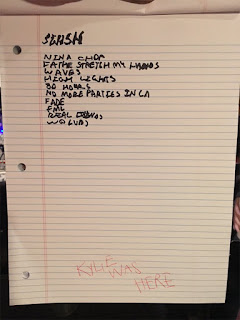 NINA CHOP
FATHE STRETCH MY HANDS
WAVES
HIGH LIGHTS
30 HOURS
NO MORE PARTIES IN LA
FADE
FML
REAL FRIENDS
WOLVES
KYLIE WAS
HERE